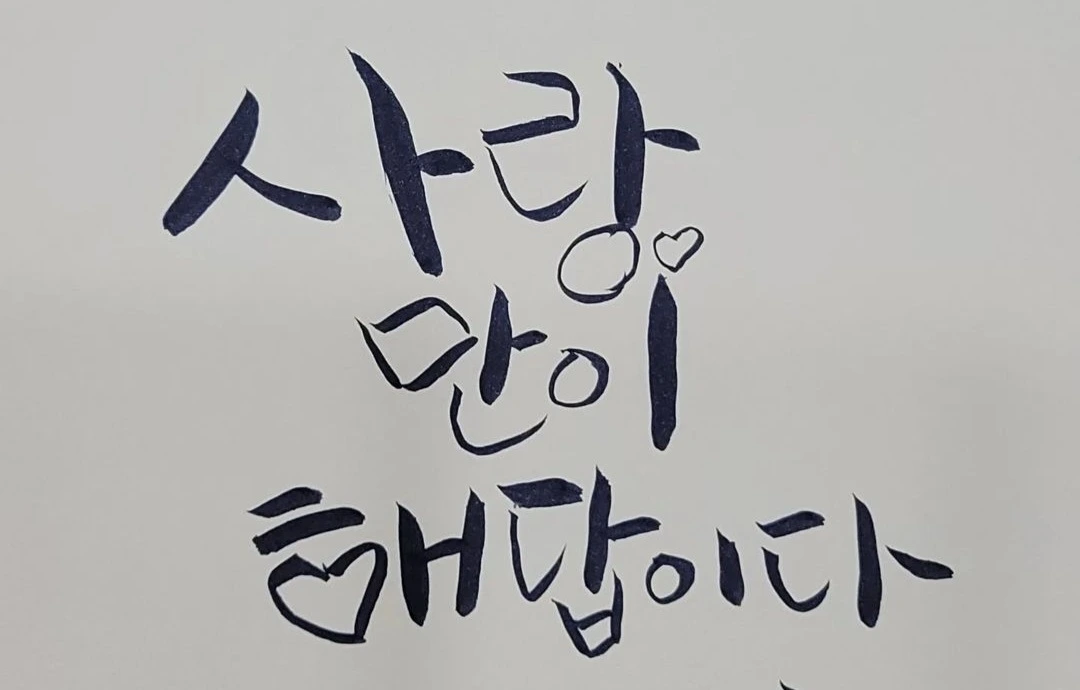 사랑
만이
해답이다